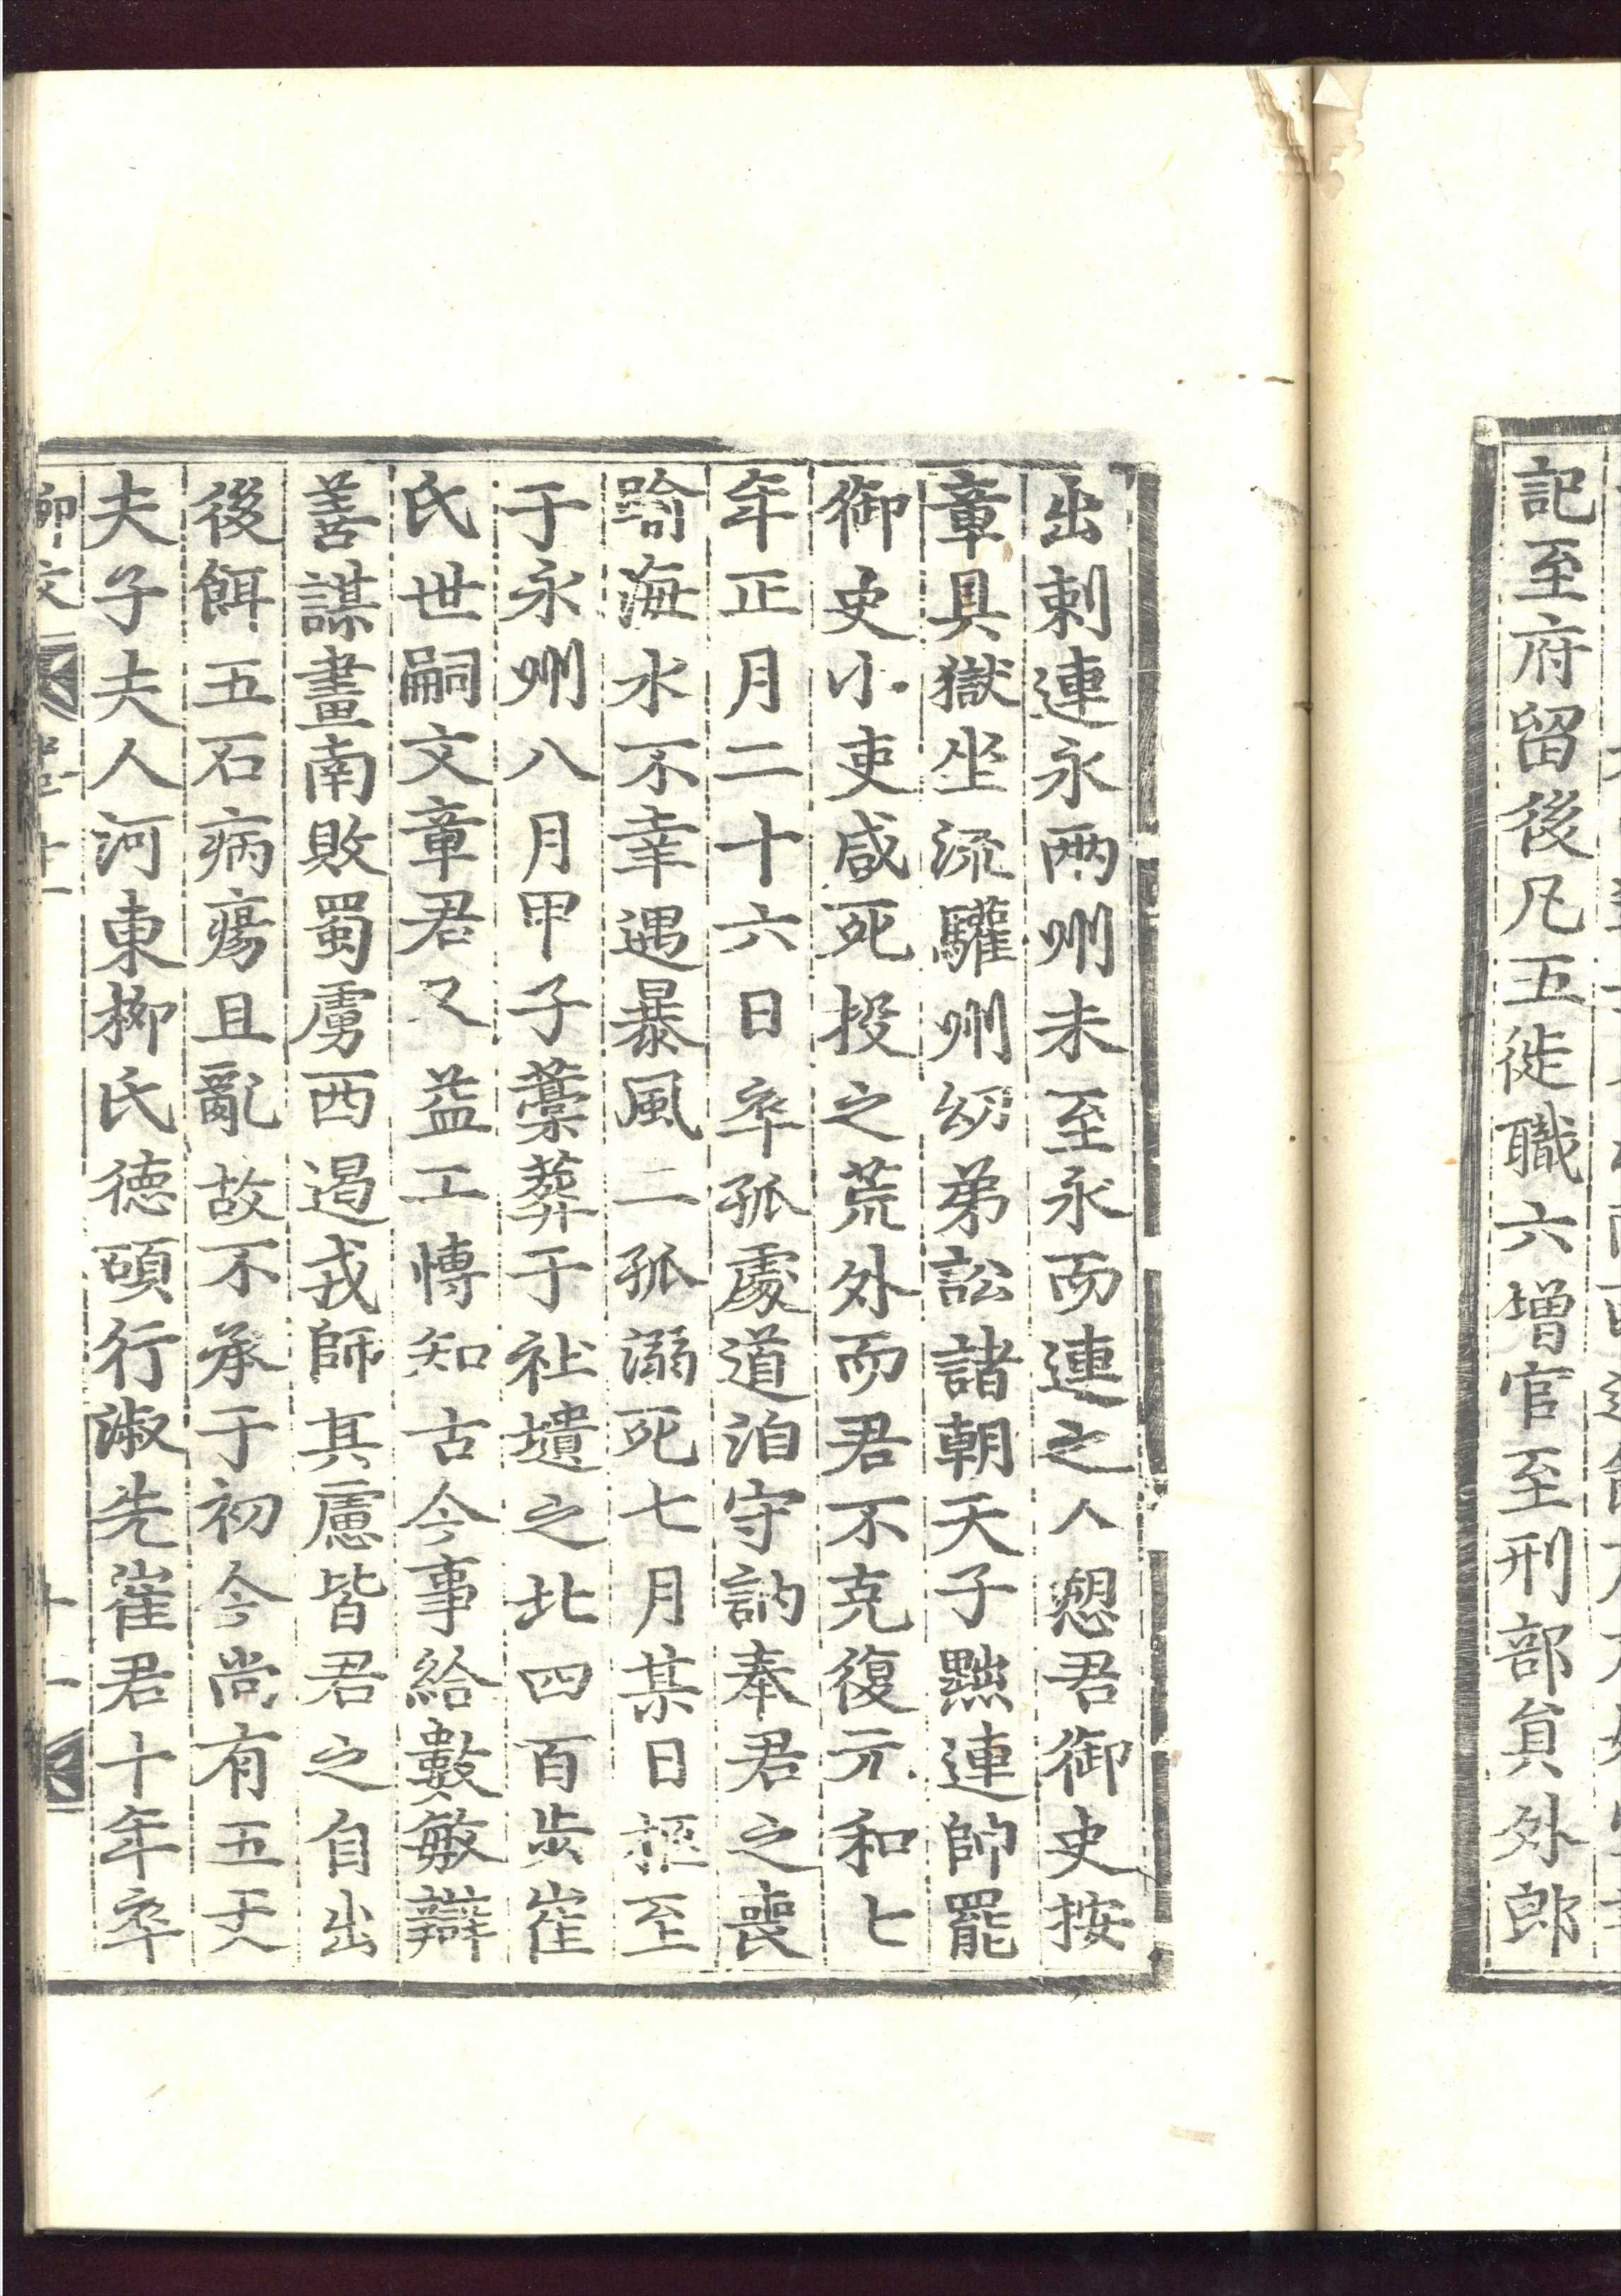 記至府留後凡五徙職六增官至刑部貟外郎
出刺連永兩州未至永而連之人愬君御史按
章具獄坐流驩州幼弟訟諸朝天子黜連帥罷
御史小吏咸死投之荒外而君不克復元和七
年正月二十六日卒孤處道洎守訥奉君之喪
踰海水不幸遇暴風二孤溺死七月某日柩至
于永州八月甲子藁葬于社壝之北四百步崔
氏世嗣文章君又益工博知古今事給數敏辯
善謀畫南敗蜀虜西遏戎師其慮皆君之自出
後餌五石病瘍且亂故不承于初今尚有五丈
夫子夫人河東柳氏德碩行淑先崔君十年卒
柳文 十一